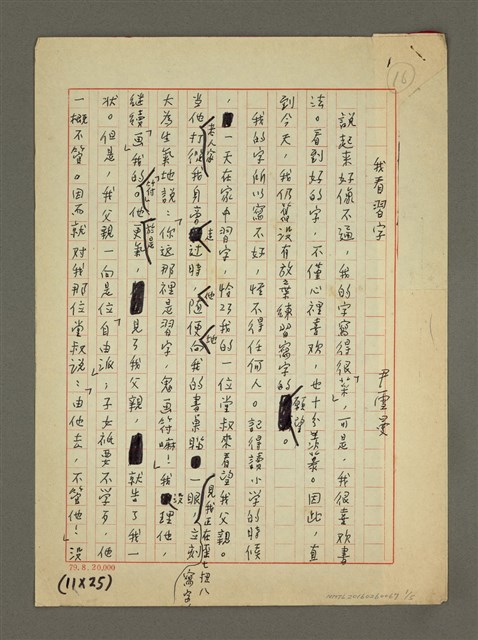 16
我看習字
尹雪曼
說起來好像不通，我的字寫得很「菜」，可是，我很喜歡書
法。看到好的字，不僅心裡喜歡，也十分羨慕。因此，直
到今天，我仍舊沒有放棄練習寫字的願望。
我的字所以寫不好，怪不得任何人。記得讀小學的時候
，一天在家中習字，恰巧我的一位堂叔來看望我父親。
當他老人家打從我身旁走過時，隨便他向我的書桌瞄地一眼，見我正在歪七扭八寫字，立刻
大為生氣地說：「你這那裡是習字，鬼畫符嘛！」我沒理他，
繼續「畫」我的「符」。他於是更氣，見了我父親，就告了我一
狀。但是，我父親一向是位「自由派」；子女祇要不學歹，他
一概不管。因而就对我那位堂叔說：「由他去，不管他！」沒
79.8.20,000
(11X25)
1/5